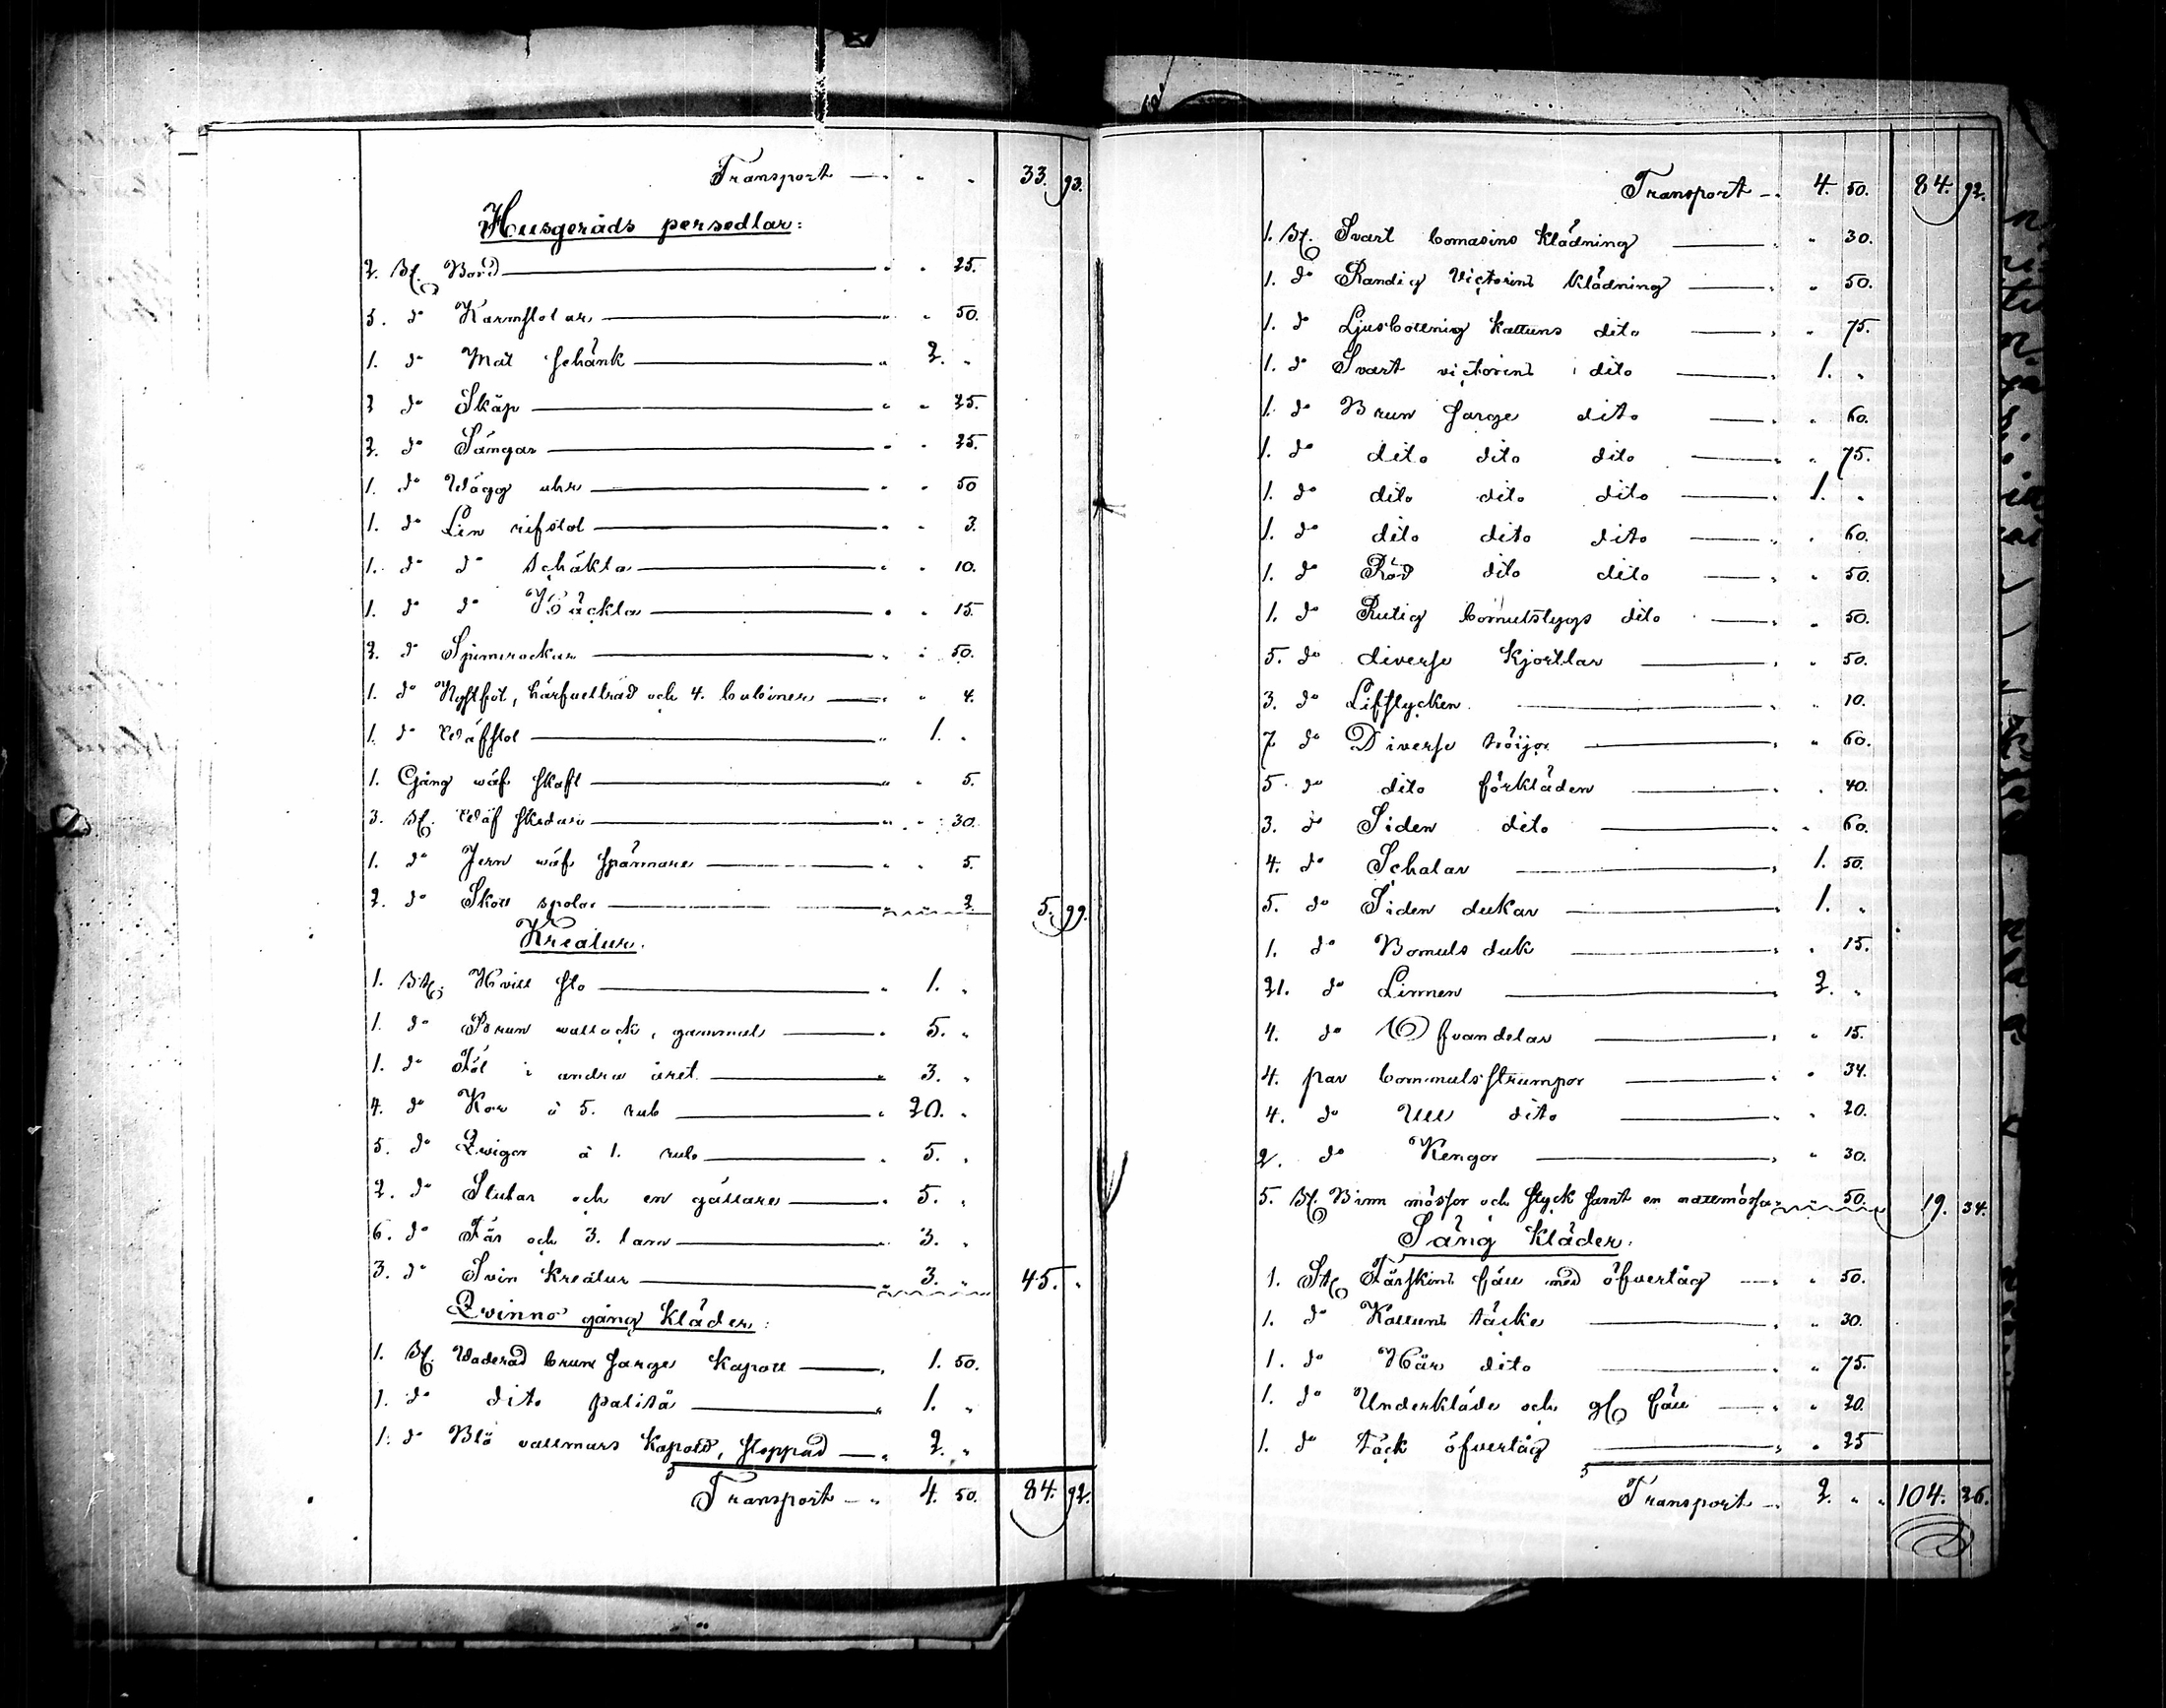 Transport — " " 33. 93.
Husgeråds persedlar:
2. St. Bord — " " 25.
3. do Karmstolar — " " 50.
1. do Mat schänk — " 2. "
2 do Skåp — " " 25.
2. do Sängar — " " 25.
1. do Wägg uhr — " " 50
1. do Lin rifstol — " " 3.
1. do do schäkta — " " 10.
1. do do Häckla — " " 15.
2. do Spinnrockar — " " 50.
1. do Nystfot, härfvelträd och 4. bobiner — " " 4.
1. do Wäfstol — " 1. "
1. Gång wäf skaft — " " 5.
3. St. Wäf skedar — " " 30.
1. do Jern wäf spännare — " " 5.
2. do Skott spolar — " " 2. 5. 99.
Kreatur.
1. St. Hvitt sto — " 1. "
1. do Brun vallack, gammal — " 5. "
1. do Föl i andra året — " 3. "
4. do Kor à 5. rub — " 20. "
5. do Qwigor à 1. rub — " 5. "
2. do Stutar och en gallare — " 5. "
6. do Får och 3. lam — " 3. "
3. do Svin kreatur — " 3. " 45. "
Qwinno gång kläder:
1. St. Waderad brun sarge kapott — " 1. 50.
1. do dito palitå — " 1. "
1. do Blå vallmars kapott, stoppad — " 2. "
Transport — " 4. 50. 84. 92.
Transport — 4. 50. 84. 92.
1. St. Svart bomasins klädning — " " 30.
1. do Randig Victorins klädning — " " 50.
1. do Ljusbottenig kattuns dito — " " 75.
1. do Svart victorins dito — " 1. "
1. do Brun sarge dito — " " 60.
1. do dito dito dito — " " 75.
1. do dito dito dito — " 1. "
1. do dito dito dito — " " 60.
1. do Röd dito dito — " " 50.
1. do Rutig bomulstygs dito — " " 50.
5. do diverse kjortlar — " " 50.
3. do Lifstycken — " " 10.
7 do Diverse tröijor — " " 60.
5 do dito förkläden — " " 40.
3. do Siden dito — " " 60.
4. do Schalar — " 1. 50.
5. do Siden dukar — " 1. "
1. do Bomuls duk — " " 15.
21. do Linnen — " 2. "
4. do Ofvandelar — " " 15.
4. par bommulsstrumpor — " " 34.
4. do Ull dito — " " 20.
2. do Kengor — " " 30.
5. St. Binn mössor och styck samt en nattmössa " " 50. 19. 34.
Säng kläder.
1. St. Fårskins fäll med öfvertåg — " " 50.
1. do Kattuns täcke — " " 30.
1. do Hår dito — " " 75.
1. do Underkläde och gl. fäll — " " 20.
1. do täck öfvertåg — " " 25
Transport — " 2. " " 104. 26.